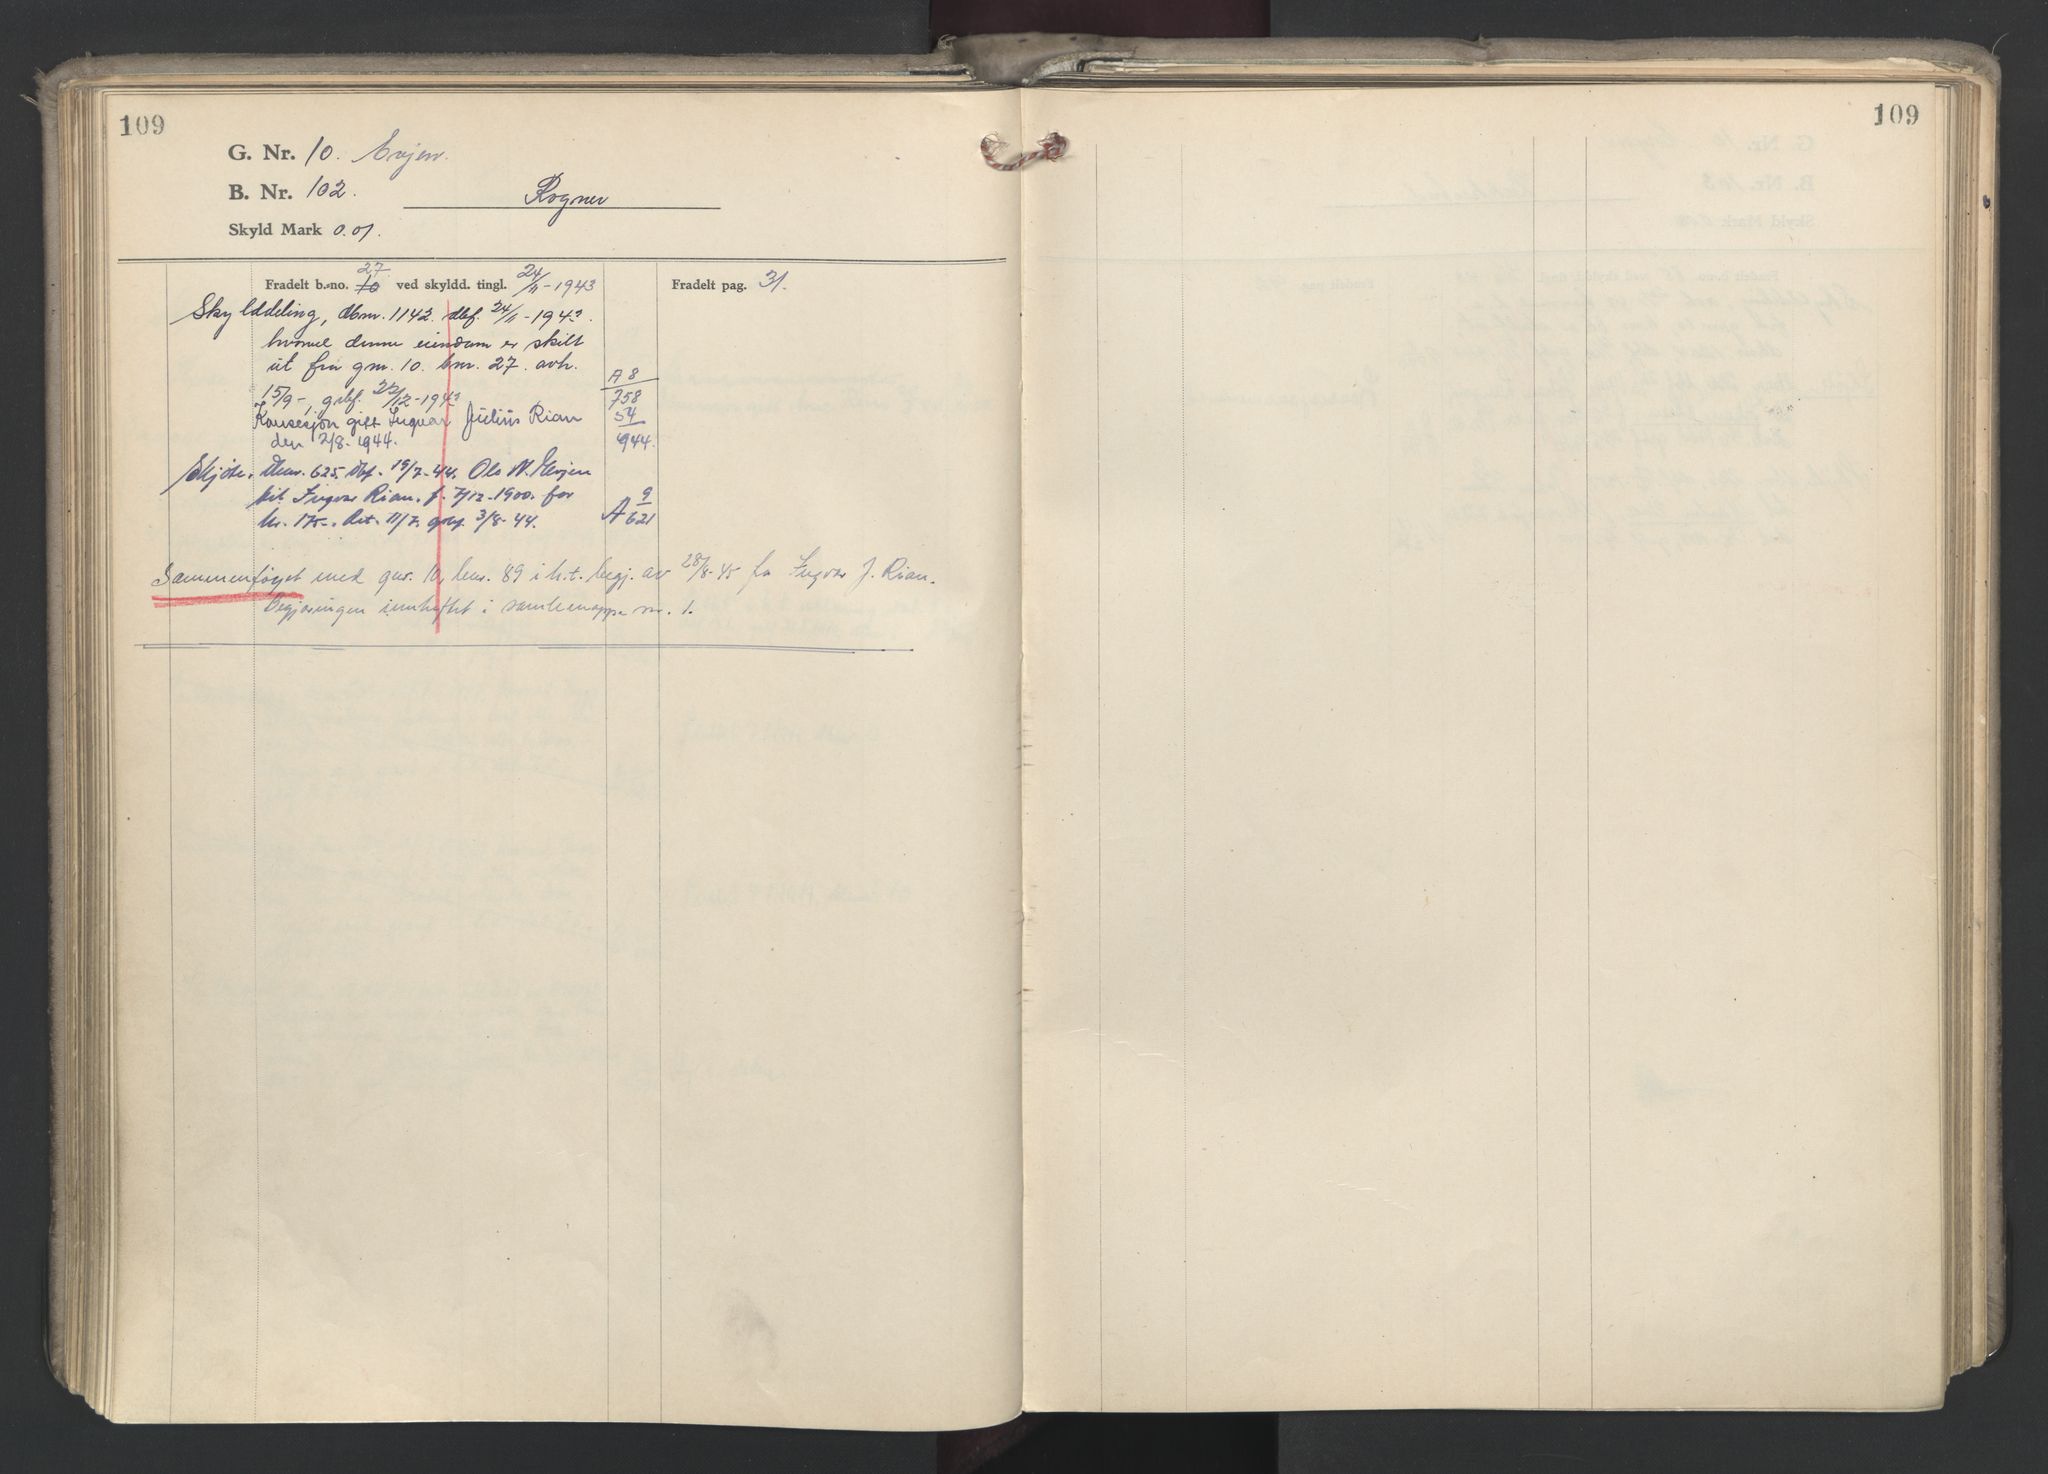 109
G. Nr. 10. Evjen.
B. Nr. 102. Rogner
Skyld Mark 0.01.
Fradelt b.-no. 27 10 ved skyldd. tingl. 24/11-1943
Fradelt pag. 31.
Skylddeling, dbnr. 1142. dbf. 24/11-1943.
hvorved denne eiendom er skilt
ut fra gnr. 10. bnr. 27. avh.
15/9-, grbf. 22/12-1943
A 8
758
Konsesjon gitt Ingvar Julius Rian
54
den 2/8-1944.
944.
Skjøte. Dbnr. 625. dbf. 15/7-44. Ola N. Evjen
til Ingvar Rian. f. 7/12-1900. for
kr. 175.-. Dat. 11/7. grbf 3/8-44.
A 9
621
Sammenføyet med gnr. 10, bnr. 89 i h.t. begj. av 28/8-45 fra Ingvar J. Rian.
Begjæringen innheftet i samlemappe nr. 1.
109